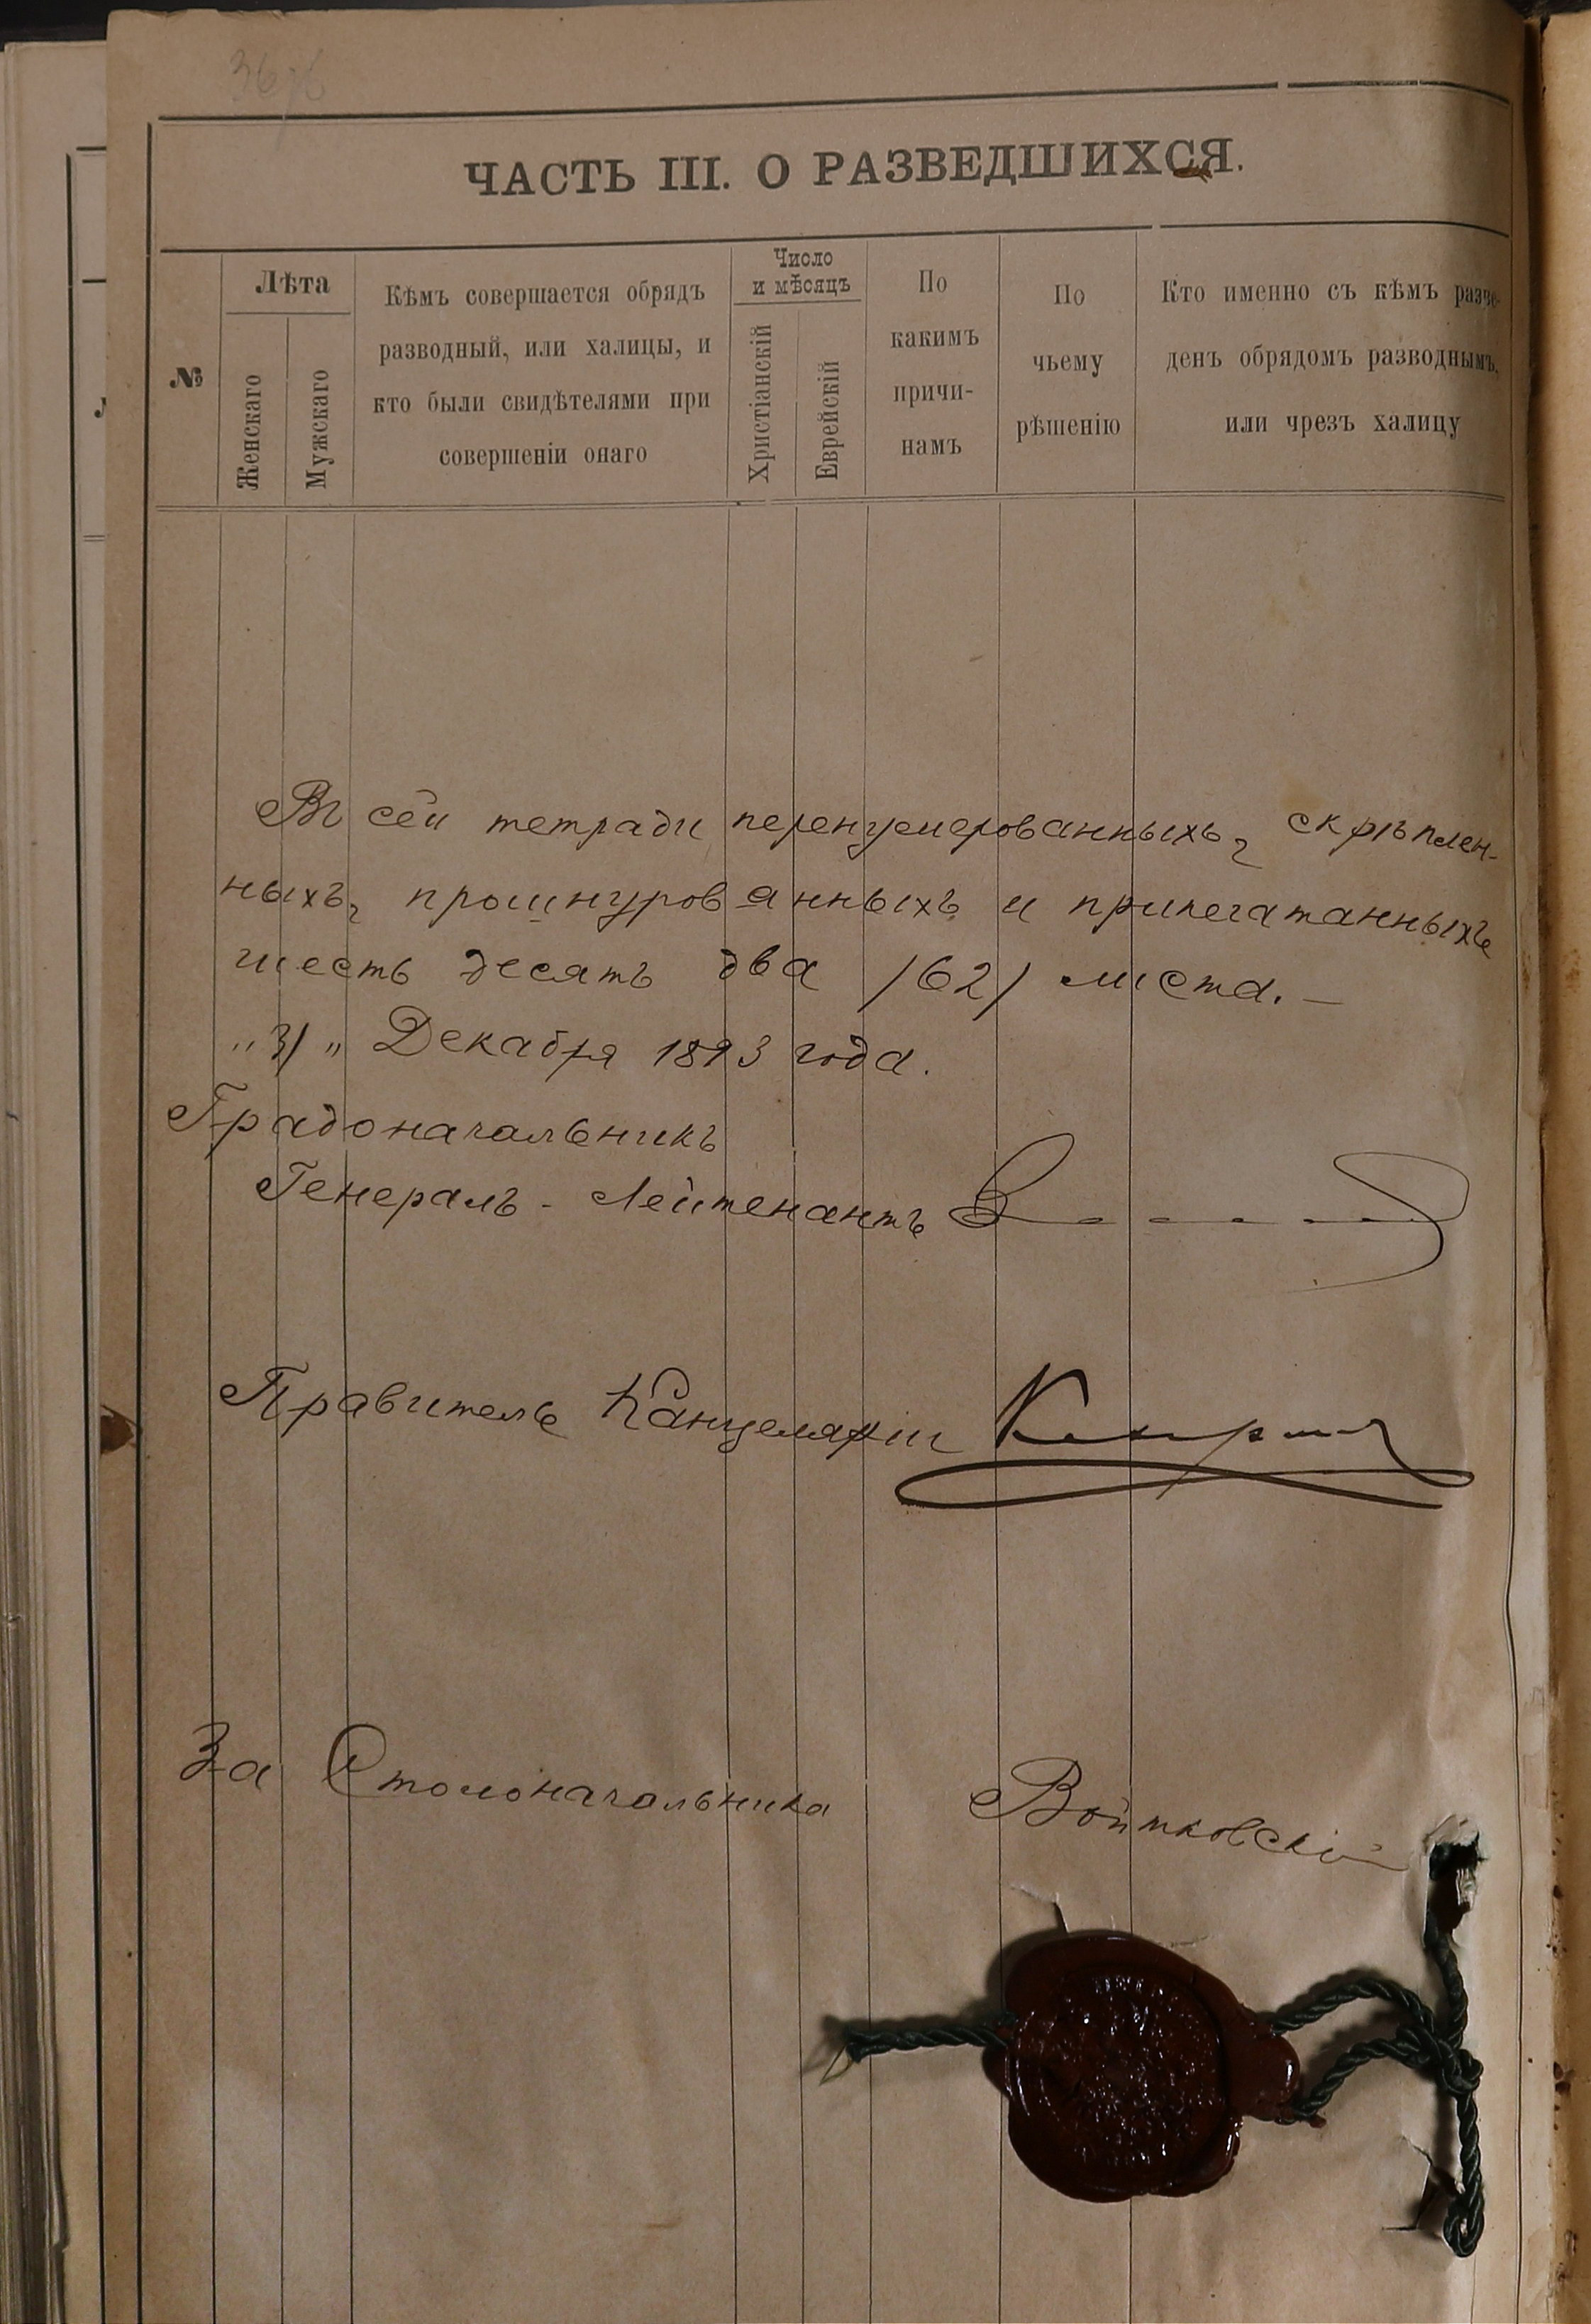 ЧАСТЬ III. О РАЗВЕДШИХСЯ.
№
Лѣта
Женскаго
Мужскаго
Кѣмъ совершается обрядъ
разводный, или халицы, и
кто были свидѣтелями при
совершеніи онаго
Число
и мѣсяцъ
Христіанскій
Еврейскій
По
какимъ
причи-
намъ
По
чьему
рѣшенію
Кто именно съ кѣмъ разве-
денъ обрядомъ разводнымъ,
или чрезъ халицу
Въ сей тетради перенумерованныхъ, скрѣплен-
ныхъ, прошнурованныхъ и припечатанныхъ
шесть десятъ два /62/ листа. —
"31" Декабря 1893 года.
Градоначальникъ
Генералъ - Лейтенантъ
Правитель Канцеляріи
За Столоначальника Войтковскій